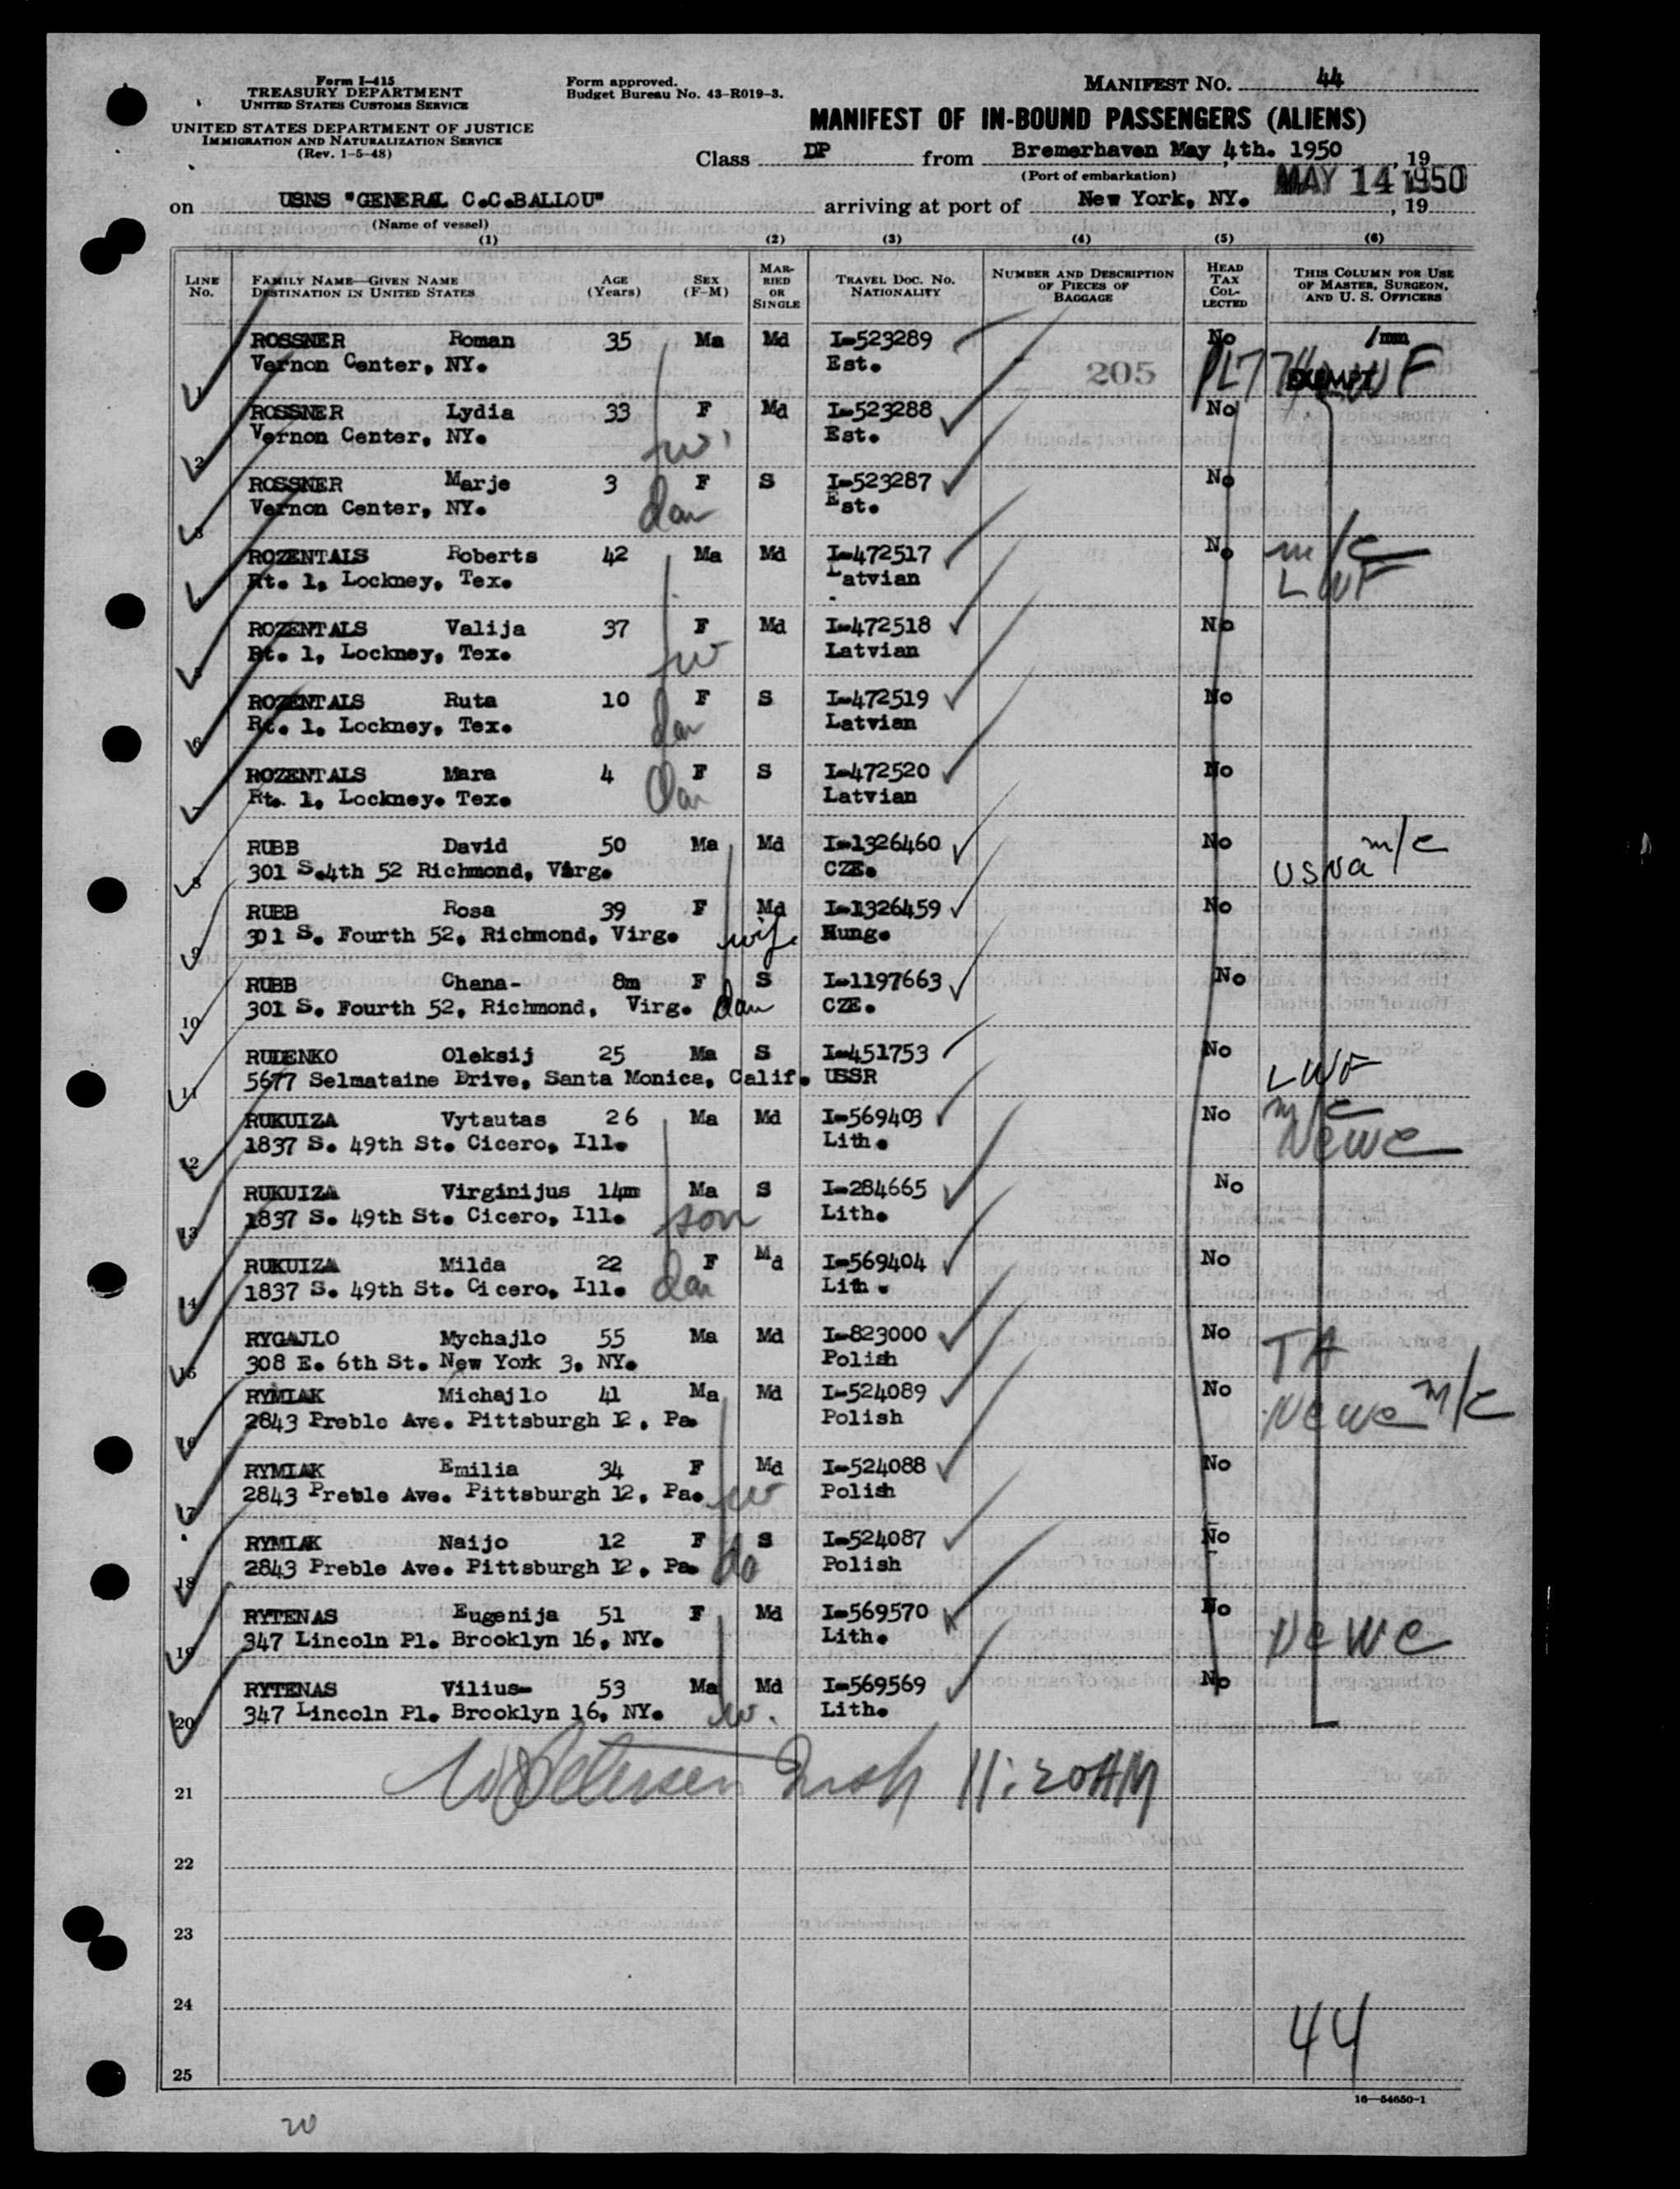 Form I-415
TREASURY DEPARTMENT
UNITED STATES CUSTOMS SERVICE
UNITED STATES DEPARTMENT OF JUSTICE
IMMIGRATION AND NATURALIZATION SERVICE
(Rev. 1-5-48)
Form approved.
Budget Bureau No. 43-R019-3.
MANIFEST NO. 44
MANIFEST OF IN-BOUND PASSENGERS (ALIENS)
Class DP from Bremerhaven May 4th. 1950, 19
(Port of embarkation)
MAY 14 1950
on USNS "GENERAL C.C.BALLOU" arriving at port of New York, NY., 19
(Name of vessel)
(1) (2) (3) (4) (5) (6)
LINE No. FAMILY NAME—GIVEN NAME DESTINATION IN UNITED STATES AGE (Years) SEX (F-M) MARRIED OR SINGLE TRAVEL DOC. NO. NATIONALITY NUMBER AND DESCRIPTION OF PIECES OF BAGGAGE HEAD TAX COLLECTED THIS COLUMN FOR USE OF MASTER, SURGEON, AND U. S. OFFICERS
ROSSNER Roman 35 Ma Md I-523289 No
1 Vernon Center, NY. Est. 205 PL774 EXEMPT
ROSSNER Lydia 33 F Md I-523288 No
2 Vernon Center, NY. Est.
ROSSNER Marje 3 F S I-523287 No
3 Vernon Center, NY. dau Est.
ROZENTALS Roberts 42 Ma Md I-472517 No m/c
4 Rt. 1, Lockney, Tex. Latvian LWF
ROZENTALS Valija 37 F Md I-472518 No
5 Rt. 1, Lockney, Tex. w Latvian
ROZENTALS Ruta 10 F S I-472519 No
6 Rt. 1, Lockney, Tex. dau Latvian
ROZENTALS Mara 4 F S I-472520 No
7 Rt. 1, Lockney. Tex. dau Latvian
RUBB David 50 Ma Md I-1326460 No m/c
8 301 S.4th 52 Richmond, Virg. CZE. USNA
RUBB Rosa 39 F Md I-1326459 No
9 301 S. Fourth 52, Richmond, Virg. wife Hung.
RUBB Chana- 8m F S I-1197663 No
10 301 S. Fourth 52, Richmond, Virg. dau CZE.
RUDENKO Oleksij 25 Ma S I-451753 No
11 5677 Selmataine Drive, Santa Monica, Calif. USSR LWF
RUKUIZA Vytautas 26 Ma Md I-569403 No m/c
12 1837 S. 49th St. Cicero, Ill. Lith. NCWC
RUKUIZA Virginijus 14m Ma S I-284665 No
13 1837 S. 49th St. Cicero, Ill. son Lith.
RUKUIZA Milda 22 F Md I-569404 No
14 1837 S. 49th St. Cicero, Ill. dau Lith.
RYGAJLO Mychajlo 55 Ma Md I-823000 No
15 308 E. 6th St. New York 3, NY. Polish TA
RYMIAK Michajlo 41 Ma Md I-524089 No m/c
16 2843 Preble Ave. Pittsburgh 12, Pa. Polish NCWC
RYMIAK Emilia 34 F Md I-524088 No
17 2843 Preble Ave. Pittsburgh 12, Pa. w Polish
RYMIAK Naijo 12 F S I-524087 No
18 2843 Preble Ave. Pittsburgh 12, Pa. da Polish
RYTENAS Eugenija 51 F Md I-569570 No
19 347 Lincoln Pl. Brooklyn 16, NY. Lith. NCWC
RYTENAS Vilius- 53 Ma Md I-569569 No
20 347 Lincoln Pl. Brooklyn 16, NY. w. Lith.
21 11:20AM
22
23
24
44
25
16—54650-1
20